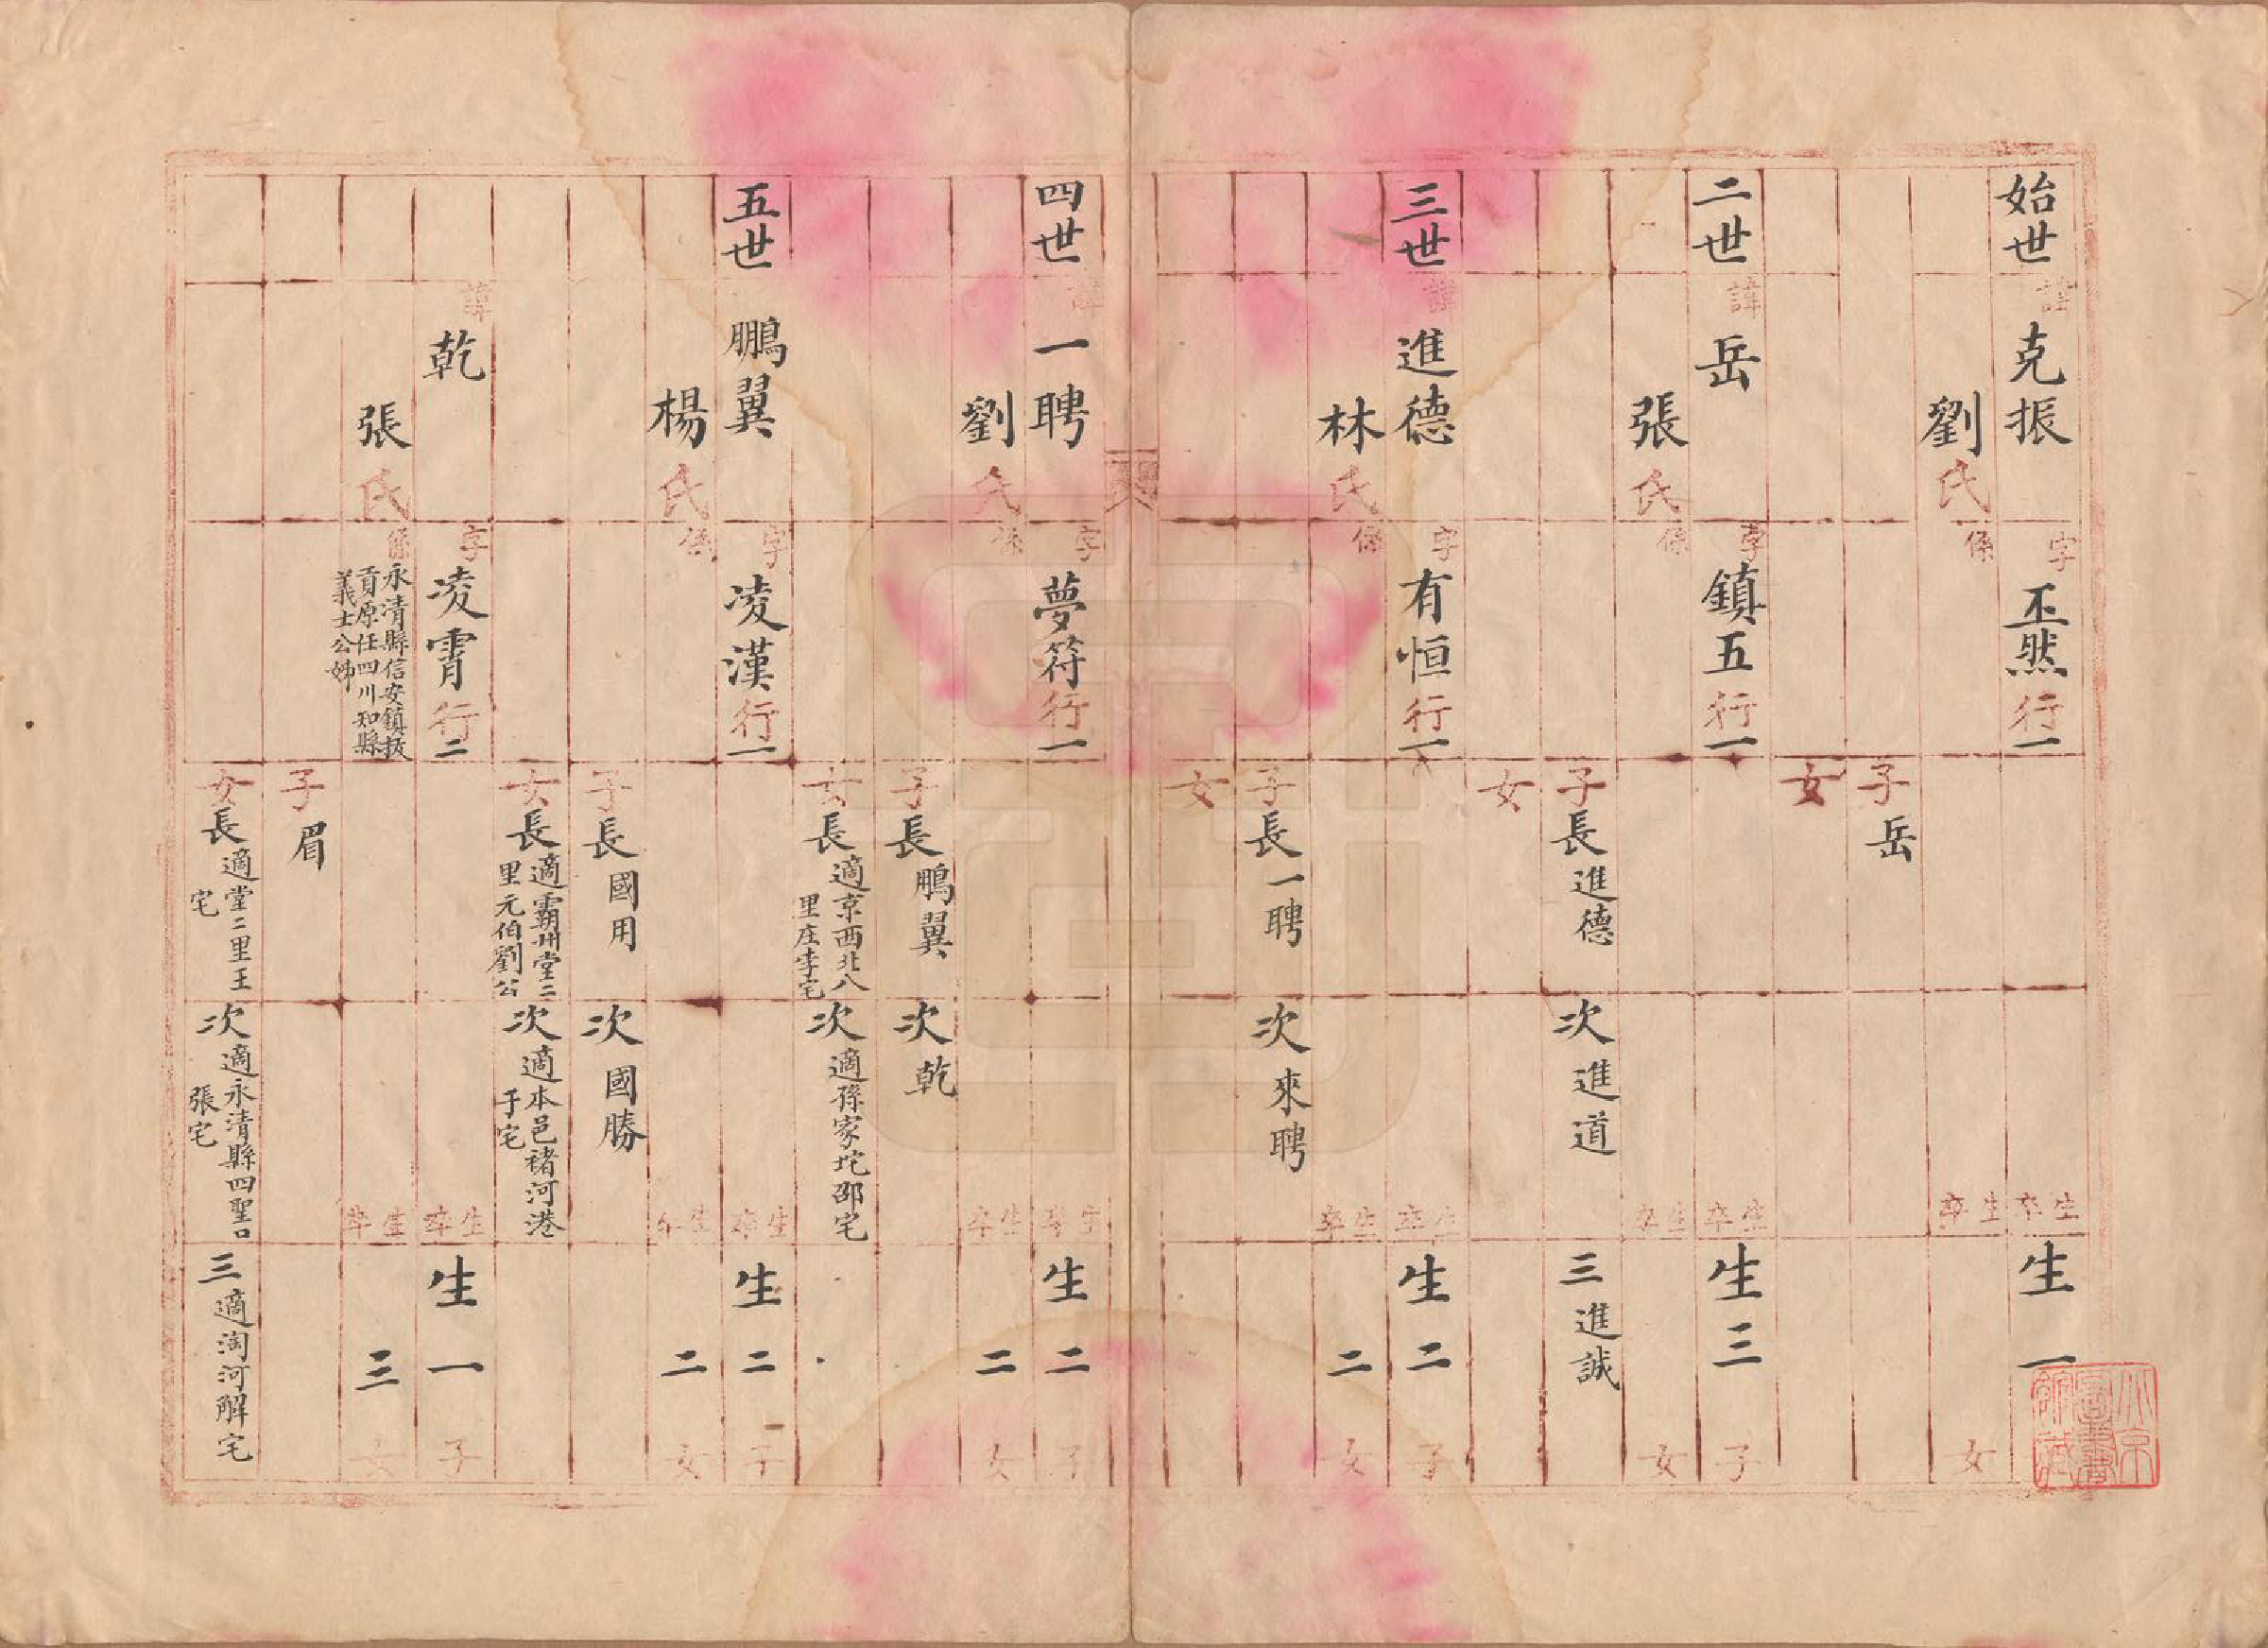 始世 諱 克振 字 丕然 行一 卒生 生一
劉氏 係 卒生 女
子 岳
女
二世 諱 岳 字 鎮五 行一 卒生 生三 子
張氏 係 卒生 女
子 長 進德 次 進道 三 進誠
女
三世 諱 進德 字 有恒 行一 卒生 生二 子
林氏 係 卒生 二 女
子 長 一聘 次 來聘
女
四世 諱 一聘 字 夢符 行一 卒生 生二 子
劉氏 係 卒生 二 女
子 長 鵬翼 次 乾
女 長 適京西北八里庄李宅 次 適孫家坨邵宅
五世 鵬翼 字 凌漢 行一 卒生 生二 子
楊氏 係 卒生 二 女
子 長 國用 次 國勝
女 長 適霸州堂二里元伯劉公 次 適本邑褚河港于宅
諱 乾 字 凌霄 行二 卒生 生一 子
張氏 係 永清縣信安鎮拔貢原任四川知縣義士公姊 卒生 三 女
子 眉
女 長 適堂二里王宅 次 適永清縣四聖口張宅 三 適淘河解宅